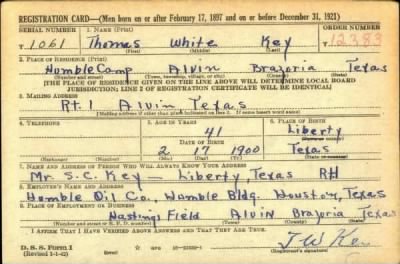 REGISTRATION CARD—(Men born on or after February 17, 1897 and on or before December 31, 1921)
SERIAL NUMBER 1. NAME (Print) ORDER NUMBER
T 1061 Thomas White Key T 12383
(First) (Middle) (Last)
2. PLACE OF RESIDENCE (Print)
Humble Camp Alvin Brazoria Texas
(Number and street) (Town, township, village, or city) (County) (State)
[THE PLACE OF RESIDENCE GIVEN ON THE LINE ABOVE WILL DETERMINE LOCAL BOARD
JURISDICTION; LINE 2 OF REGISTRATION CERTIFICATE WILL BE IDENTICAL]
3. MAILING ADDRESS
Rt. 1 Alvin Texas
[Mailing address if other than place indicated on line 2. If same insert word same]
4. TELEPHONE 5. AGE IN YEARS 6. PLACE OF BIRTH
41 Liberty
DATE OF BIRTH (Town or county)
2 17 1900 Texas
(Exchange) (Number) (Mo.) (Day) (Yr.) (State or country)
7. NAME AND ADDRESS OF PERSON WHO WILL ALWAYS KNOW YOUR ADDRESS
Mr. S. C. Key Liberty, Texas RH
8. EMPLOYER'S NAME AND ADDRESS
Humble Oil Co., Humble Bldg. Houston, Texas
9. PLACE OF EMPLOYMENT OR BUSINESS
Hastings Field Alvin Brazoria Texas
(Number and street or R. F. D. number) (Town) (County) (State)
I AFFIRM THAT I HAVE VERIFIED ABOVE ANSWERS AND THAT THEY ARE TRUE.
D. S. S. Form 1
(Revised 1-1-42) GPO T W Key
(Registrant's signature)